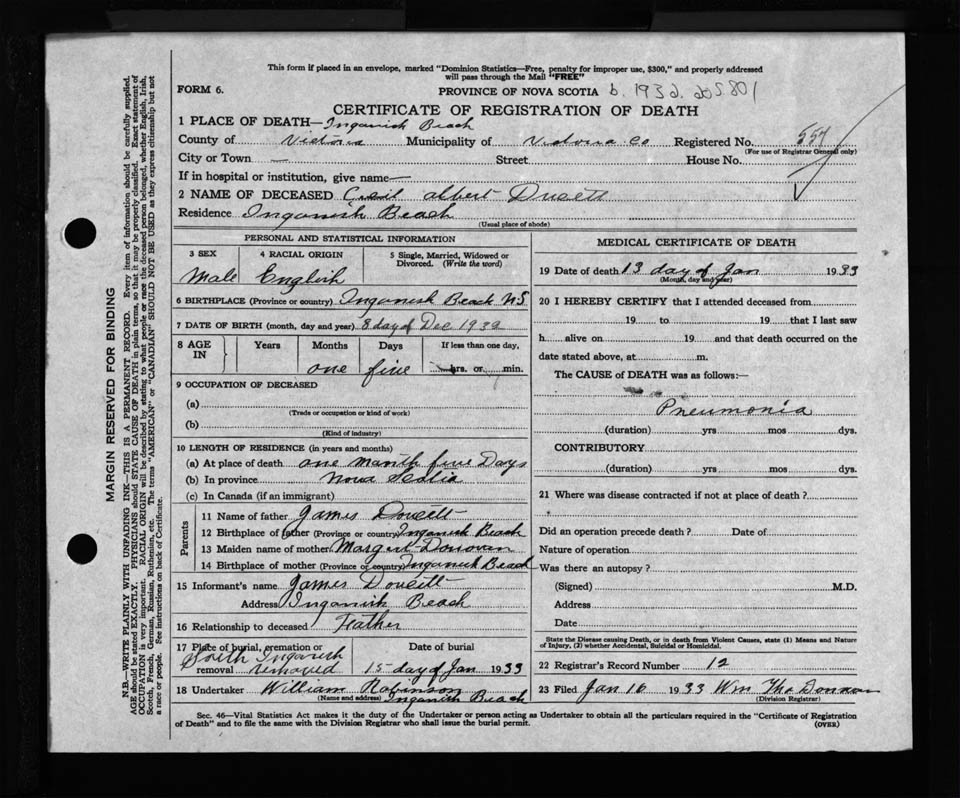 This form if placed in an envelope, marked "Dominion Statistics—Free, penalty for improper use, $300," and properly addressed
will pass through the Mail "FREE"
FORM 6.
PROVINCE OF NOVA SCOTIA b. 1932. 205801
CERTIFICATE OF REGISTRATION OF DEATH
1 PLACE OF DEATH—Inganish Beach
County of Victoria Municipality of Victoria Co Registered No. 557
(For use of Registrar General only)
City or Town — Street House No.
If in hospital or institution, give name—
2 NAME OF DECEASED Cecil albert Ducett
Residence Inganish Beach
(Usual place of abode)
PERSONAL AND STATISTICAL INFORMATION
3 SEX
Male
4 RACIAL ORIGIN
English
5 Single, Married, Widowed or
Divorced. (Write the word)
6 BIRTHPLACE (Province or country) Inganish Beach N.S
7 DATE OF BIRTH (month, day and year) 8 day of Dec 1932
8 AGE
IN
Years Months Days If less than one day,
one five hrs. or min.
9 OCCUPATION OF DECEASED
(a)
(Trade or occupation or kind of work)
(b)
(Kind of industry)
10 LENGTH OF RESIDENCE (in years and months)
(a) At place of death one manth five Days
(b) In province Nova Scotia
(c) In Canada (if an immigrant)
Parents
11 Name of father James Doucett
12 Birthplace of father (Province or country) Inganish Beach
13 Maiden name of mother Margert Donovan
14 Birthplace of mother (Province or country) Inganish Beach
15 Informant's name James Doucett
Address Inganish Beach
16 Relationship to deceased Feather
17 Place of burial, cremation or
removal South Inganish
removed
Date of burial
15 day of Jan 1933
18 Undertaker William Robinson
(Name and address) Inganish Beach
MEDICAL CERTIFICATE OF DEATH
19 Date of death 13 day of Jan 1933
(Month, day and year)
20 I HEREBY CERTIFY that I attended deceased from
19 to 19 that I last saw
h alive on 19 and that death occurred on the
date stated above, at m.
The CAUSE of DEATH was as follows:—
Pneumonia
(duration) yrs mos dys.
CONTRIBUTORY
(duration) yrs mos dys.
21 Where was disease contracted if not at place of death ?
Did an operation precede death ? Date of
Nature of operation
Was there an autopsy ?
(Signed) M.D.
Address
Date
State the Disease causing Death, or in death from Violent Causes, state (1) Means and Nature
of Injury, (2) whether Accidental, Suicidal or Homicidal.
22 Registrar's Record Number 12
23 Filed Jan 16 1933 Wm Tho Donovan
(Division Registrar)
Sec. 46—Vital Statistics Act makes it the duty of the Undertaker or person acting as Undertaker to obtain all the particulars required in the "Certificate of Registration
of Death" and to file the same with the Division Registrar who shall issue the burial permit.
(OVER)
MARGIN RESERVED FOR BINDING
N.B.—WRITE PLAINLY WITH UNFADING INK—THIS IS A PERMANENT RECORD. Every item of information should be carefully supplied.
AGE should be stated EXACTLY. PHYSICIANS should STATE CAUSE OF DEATH in plain terms, so that it may be properly classified. Exact statement of
OCCUPATION is very important. RACIAL ORIGIN will be described by stating to what people or race the deceased person belonged, whether English, Irish,
Scotch, French, German, Russian, Ruthenian, etc. The terms "AMERICAN" or "CANADIAN" SHOULD NOT BE USED as they express citizenship but not
a race or people. See instructions on back of Certificate.